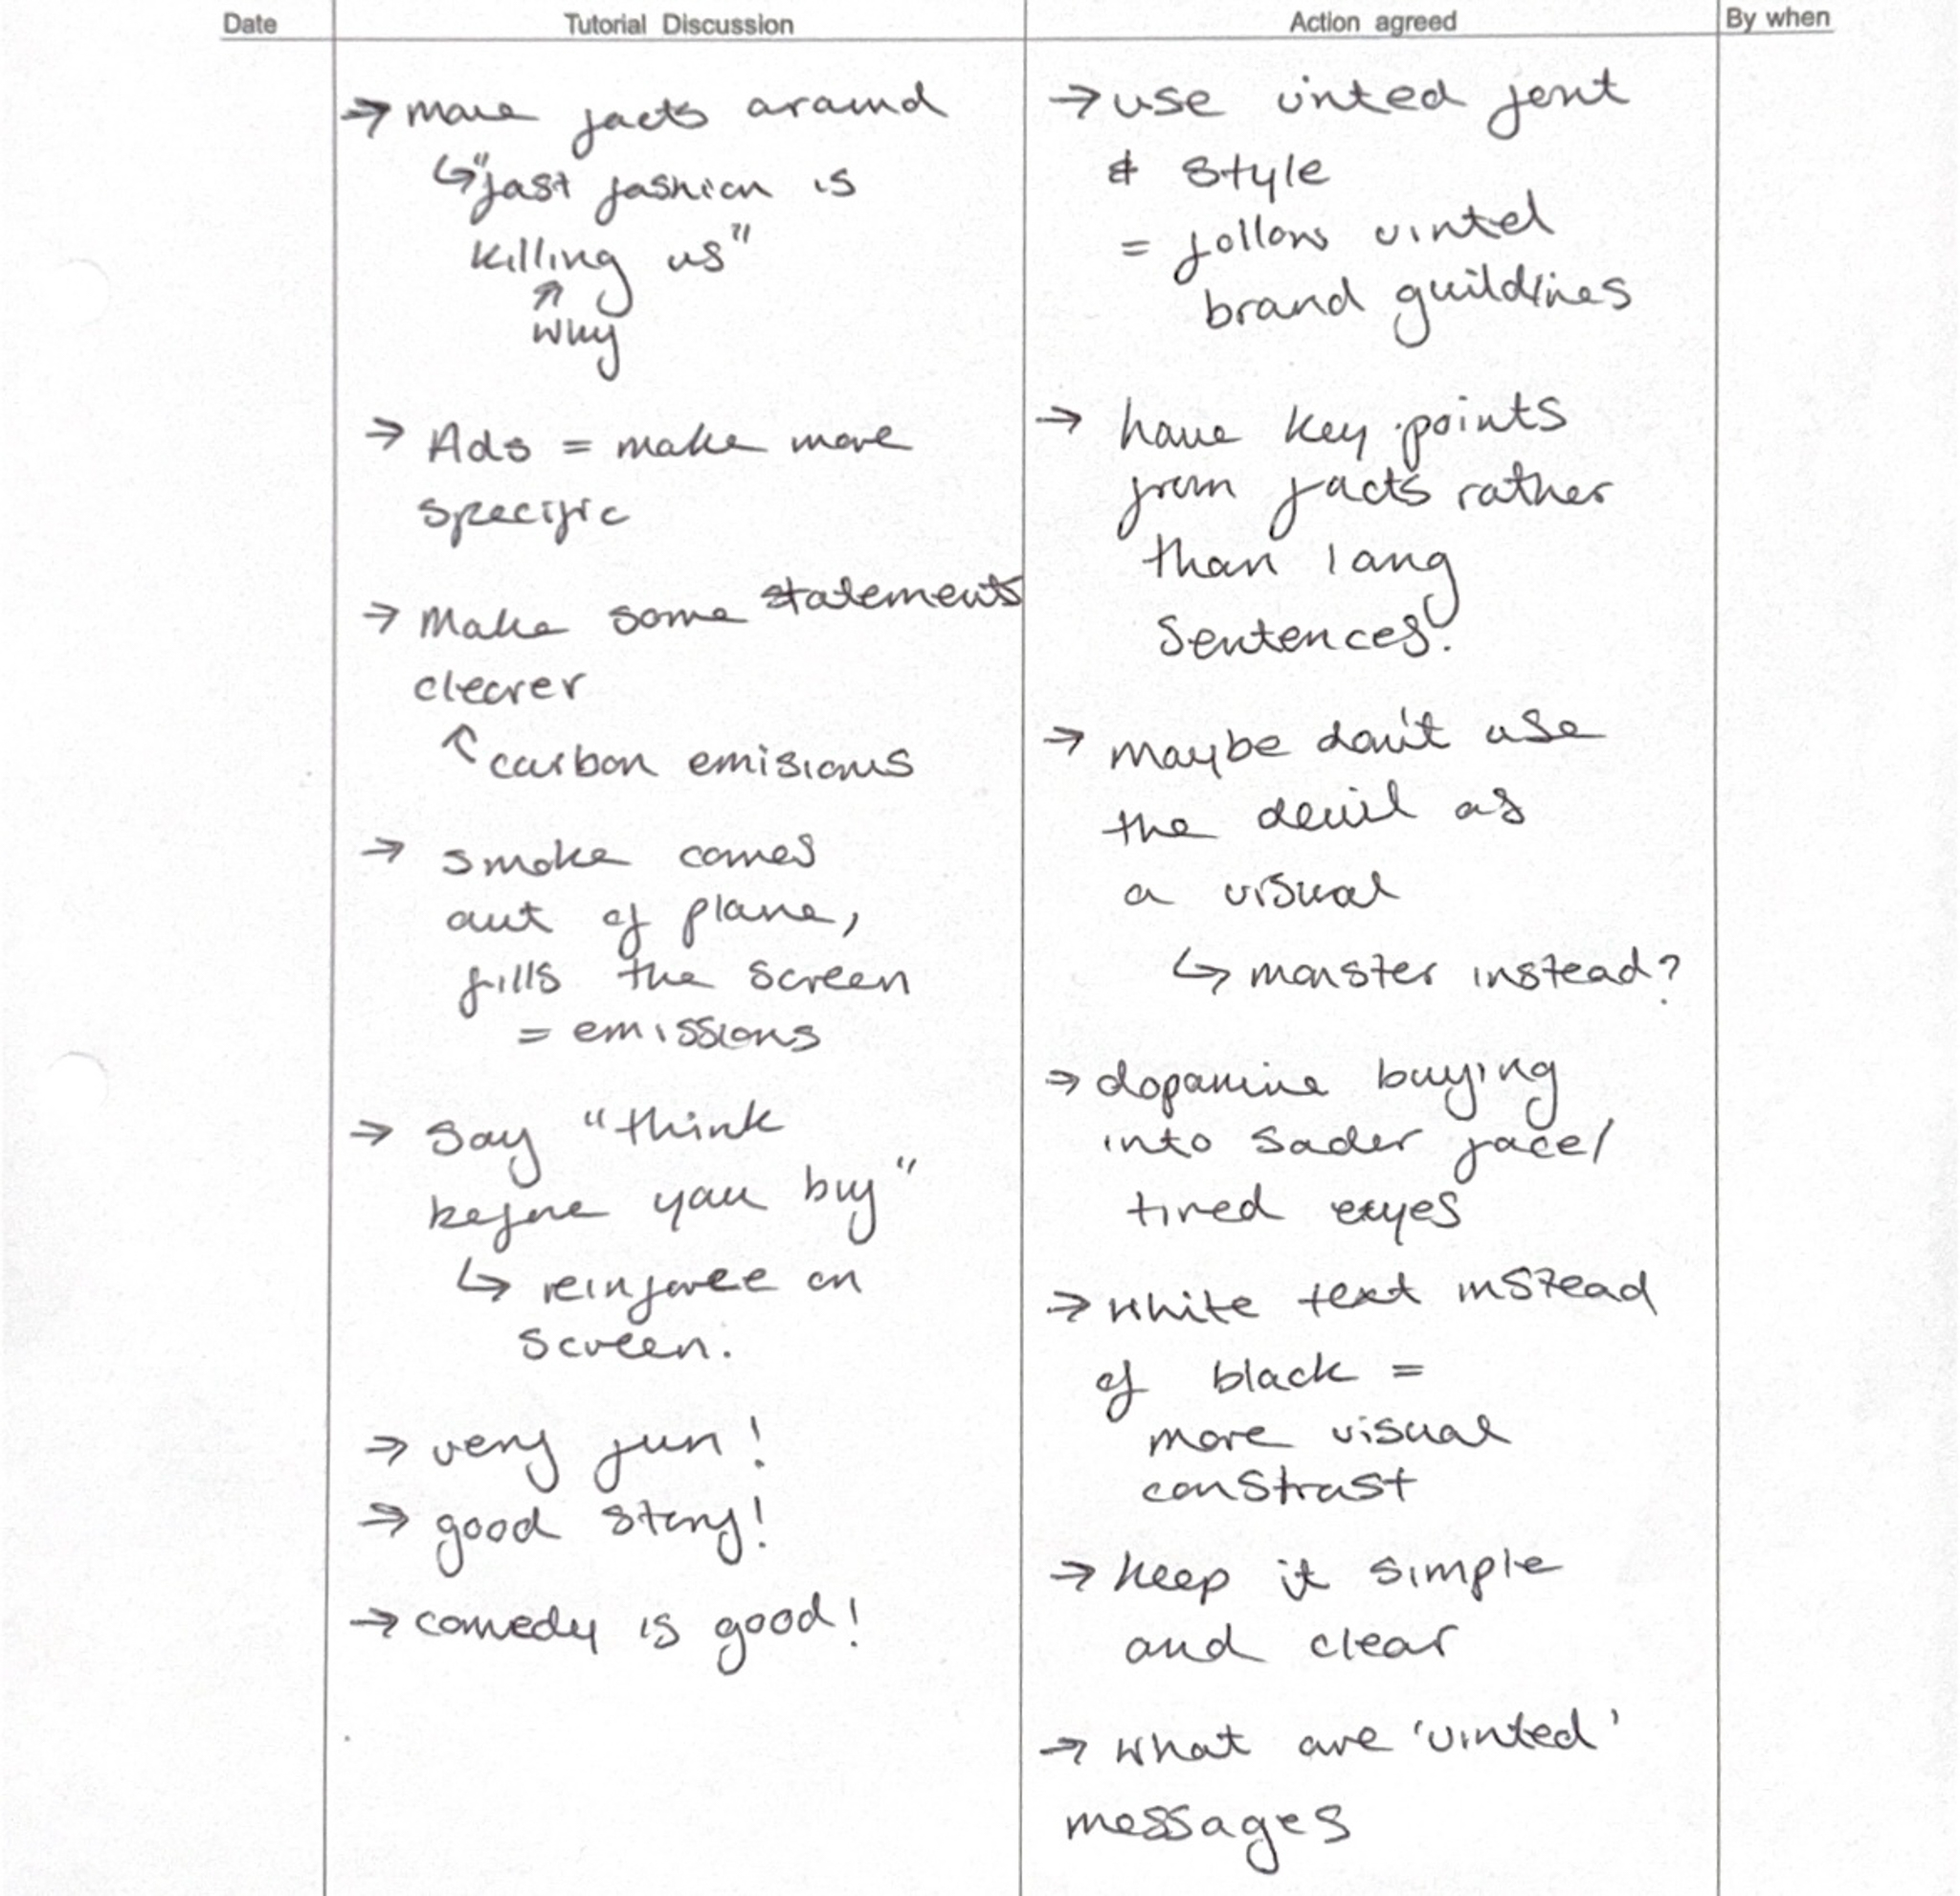 Date
Tutorial Discussion
Action agreed
By when
→ more facts around
↳ "fast fashion is
killing us"
↑
why
→ Ads = make more
specific
→ Make some statements
clearer
↖ carbon emisions
→ smoke comes
out of plane,
fills the screen
= emissions
→ Say "think
before you buy"
↳ reinforce on
screen.
→ very fun!
→ good story!
→ comedy is good!
→ use vinted font
& style
= follows vinted
brand guildlines
→ have key points
from facts rather
than long
sentences.
→ maybe don't use
the devil as
a visual
↳ monster instead?
→ dopamine buying
into sader face/
tired eyes
→ white text instead
of black =
more visual
constrast
→ keep it simple
and clear
→ what are 'vinted'
messages